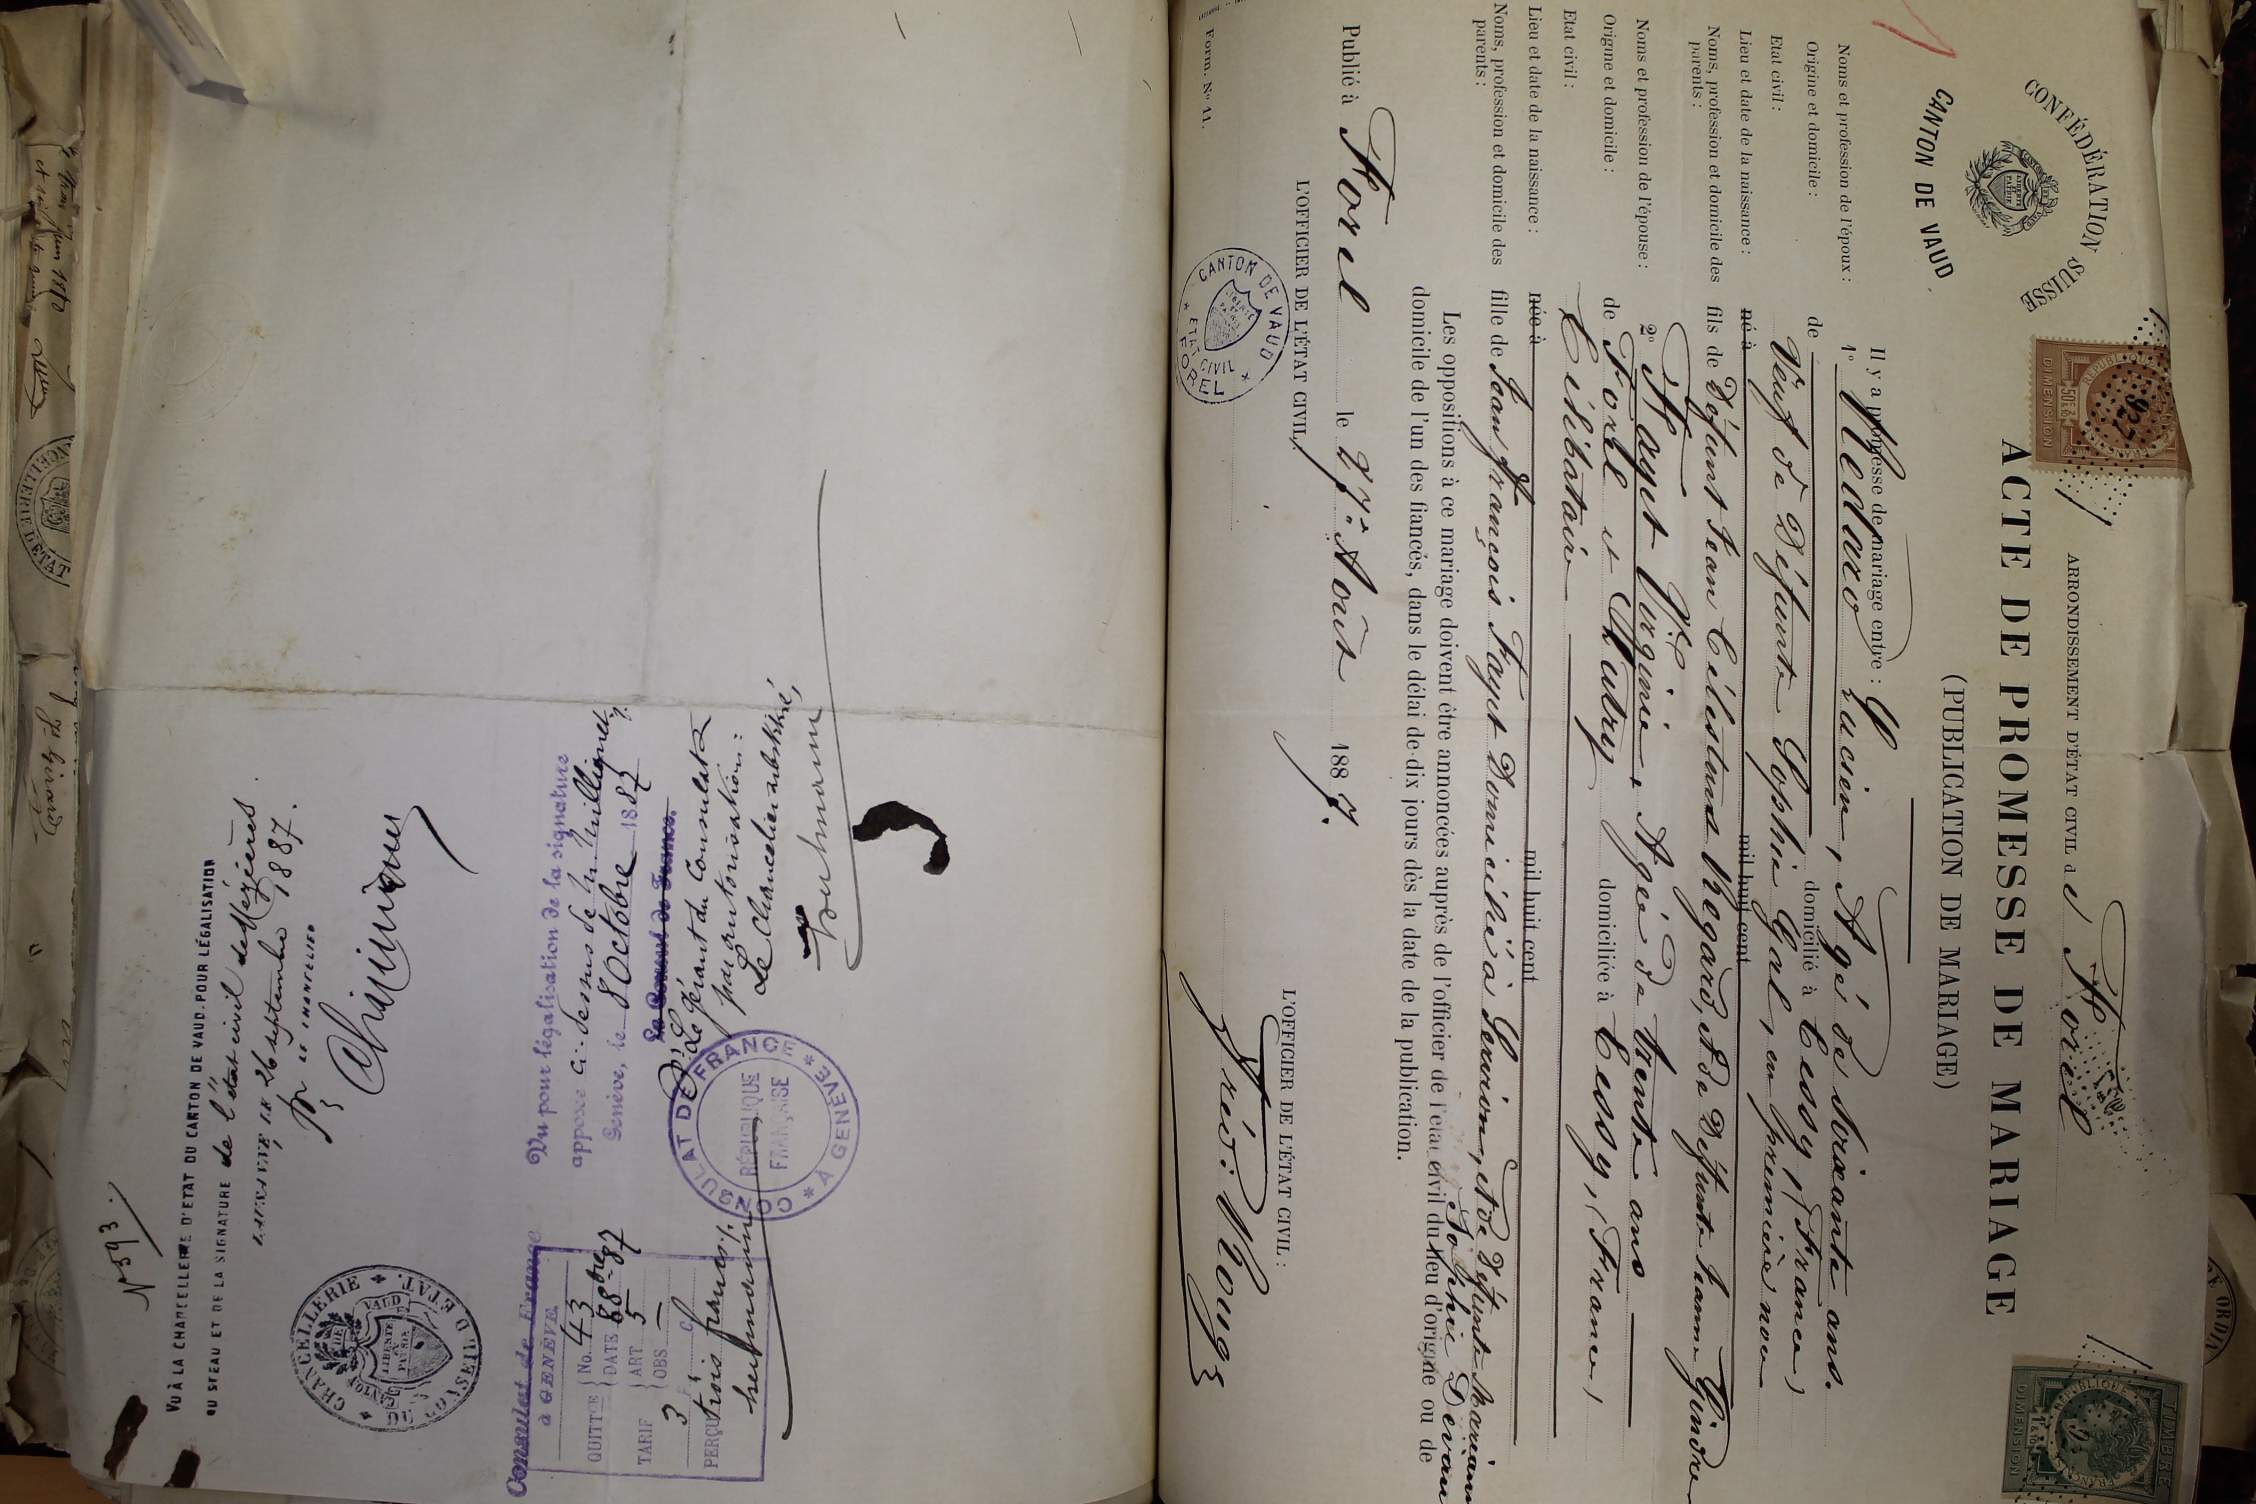 CONFÉDÉRATION SUISSE
CANTON DE VAUD
ARRONDISSEMENT D'ÉTAT CIVIL d Forel
ACTE DE PROMESSE DE MARIAGE
(PUBLICATION DE MARIAGE)
Il y a promesse de mariage entre :
Noms et profession de l'époux :
1° Lucien, Agé de soixante ans.
Origine et domicile :
de domicilié à Cessy, (France)
Etat civil :
Veuf de Défunte Sophie Gal, en première noce
Lieu et date de la naissance :
né à mil huit cent
Noms, profession et domicile des parents :
fils de Défunt Jean Célestin Regard, & de Défunte Jeanne Gindre
Noms et profession de l'épouse :
2° Fayet Virginie, Agée de trente ans
Origine et domicile :
de Forel et Cutry domiciliée à Cessy, (France)
Etat civil :
Célibataire
Lieu et date de la naissance :
née à mil huit cent
Noms, profession et domicile des parents :
fille de Jean François Fayet Domicilié à Servion, et de Défunte
Sophie Devaud
Les oppositions à ce mariage doivent être annoncées auprès de l'officier de l'état civil du lieu d'origine ou de
domicile de l'un des fiancés, dans le délai de dix jours dès la date de la publication.
Publié à Forel le 27. Août 1887.
L'OFFICIER DE L'ÉTAT CIVIL,
L'OFFICIER DE L'ÉTAT CIVIL :
Fréd: Rouge
CANTON DE VAUD
LIBERTÉ ET PATRIE
ETAT CIVIL
FOREL
Form. No 11.
DIMENSION
TIMBRE
DIMENSION
No 593.
VU À LA CHANCELLERIE D'ETAT DU CANTON DE VAUD, POUR LÉGALISATION
DU SCEAU ET DE LA SIGNATURE de l'état civil de Mézières
LAUSANNE LE 26 septembre 1887.
Pr LE CHANCELIER
CHANCELLERIE D'ETAT
Vu pour légalisation de la signature
apposée ci-dessus de M.
Genève, le 8 Octobre 1887
Le Consul de France.
Le Gérant du Consulat
par autorisation :
Le Chancelier substitué,
CONSULAT DE FRANCE À GENÈVE
RÉPUBLIQUE FRANÇAISE
Consulat de France
à GENÈVE
QUITTCE No. 43
DATE 8 8bre 87
TARIF ART 5
OBS —
3
PERÇU trois francs